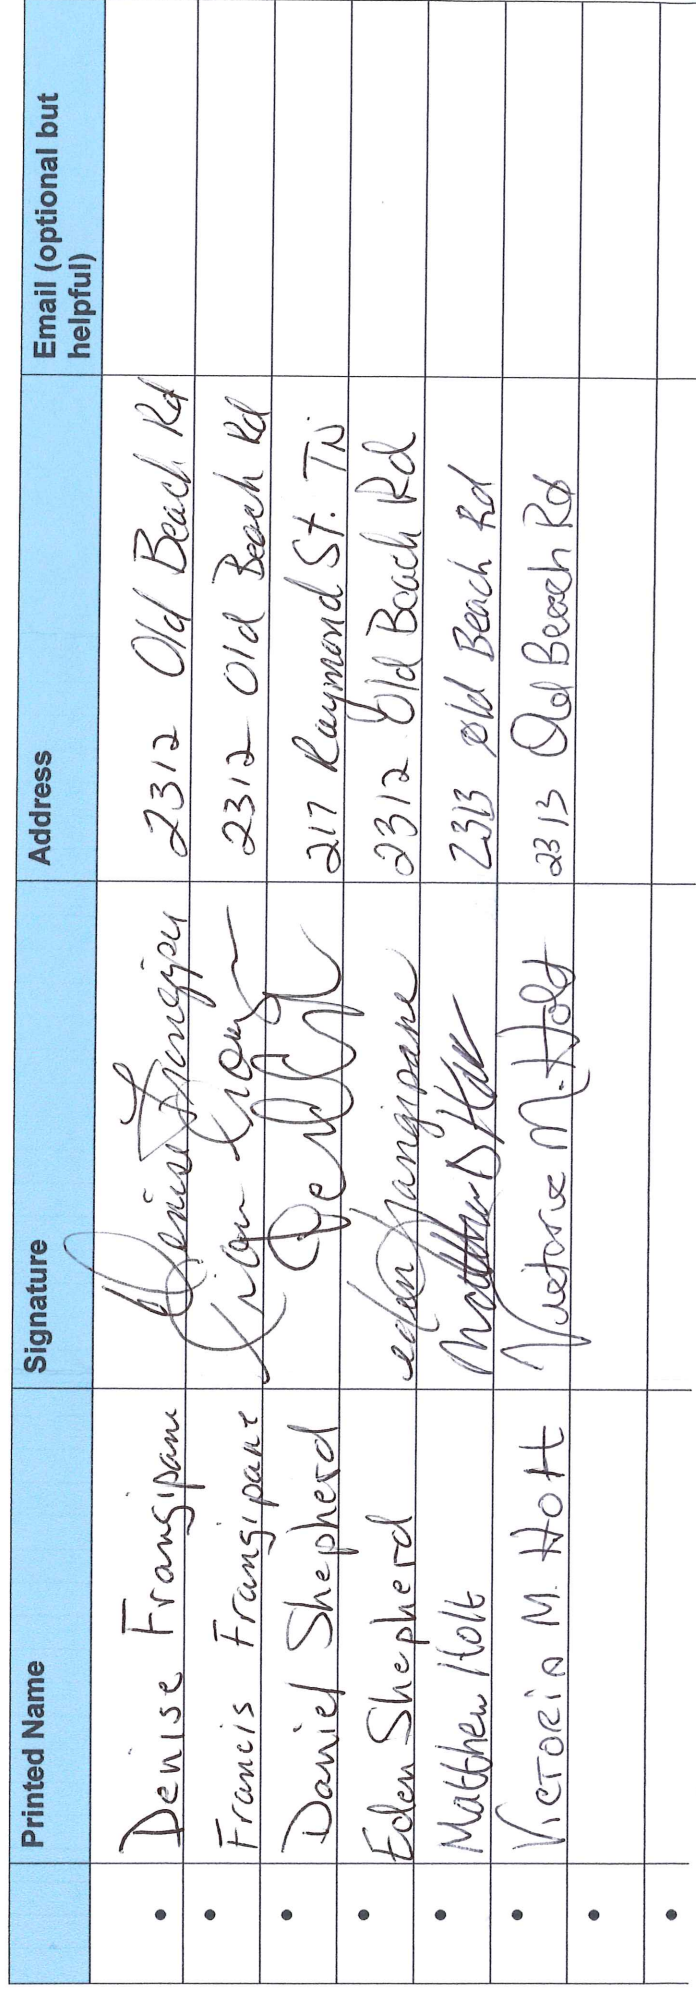 Printed Name Signature Address Email (optional but helpful)
Denise Frangipane 2312 Old Beach Rd
Francis Frangipane 2312 Old Beach Rd
Daniel Shepherd 217 Raymond St. TN
Eden Shepherd eden frangipane 2312 Old Beach Rd
Matthew Holt Matthew D 2313 old Beach Rd
VICTORIA M. HOLT Victoria M. Holt 2313 Old Beach Rd